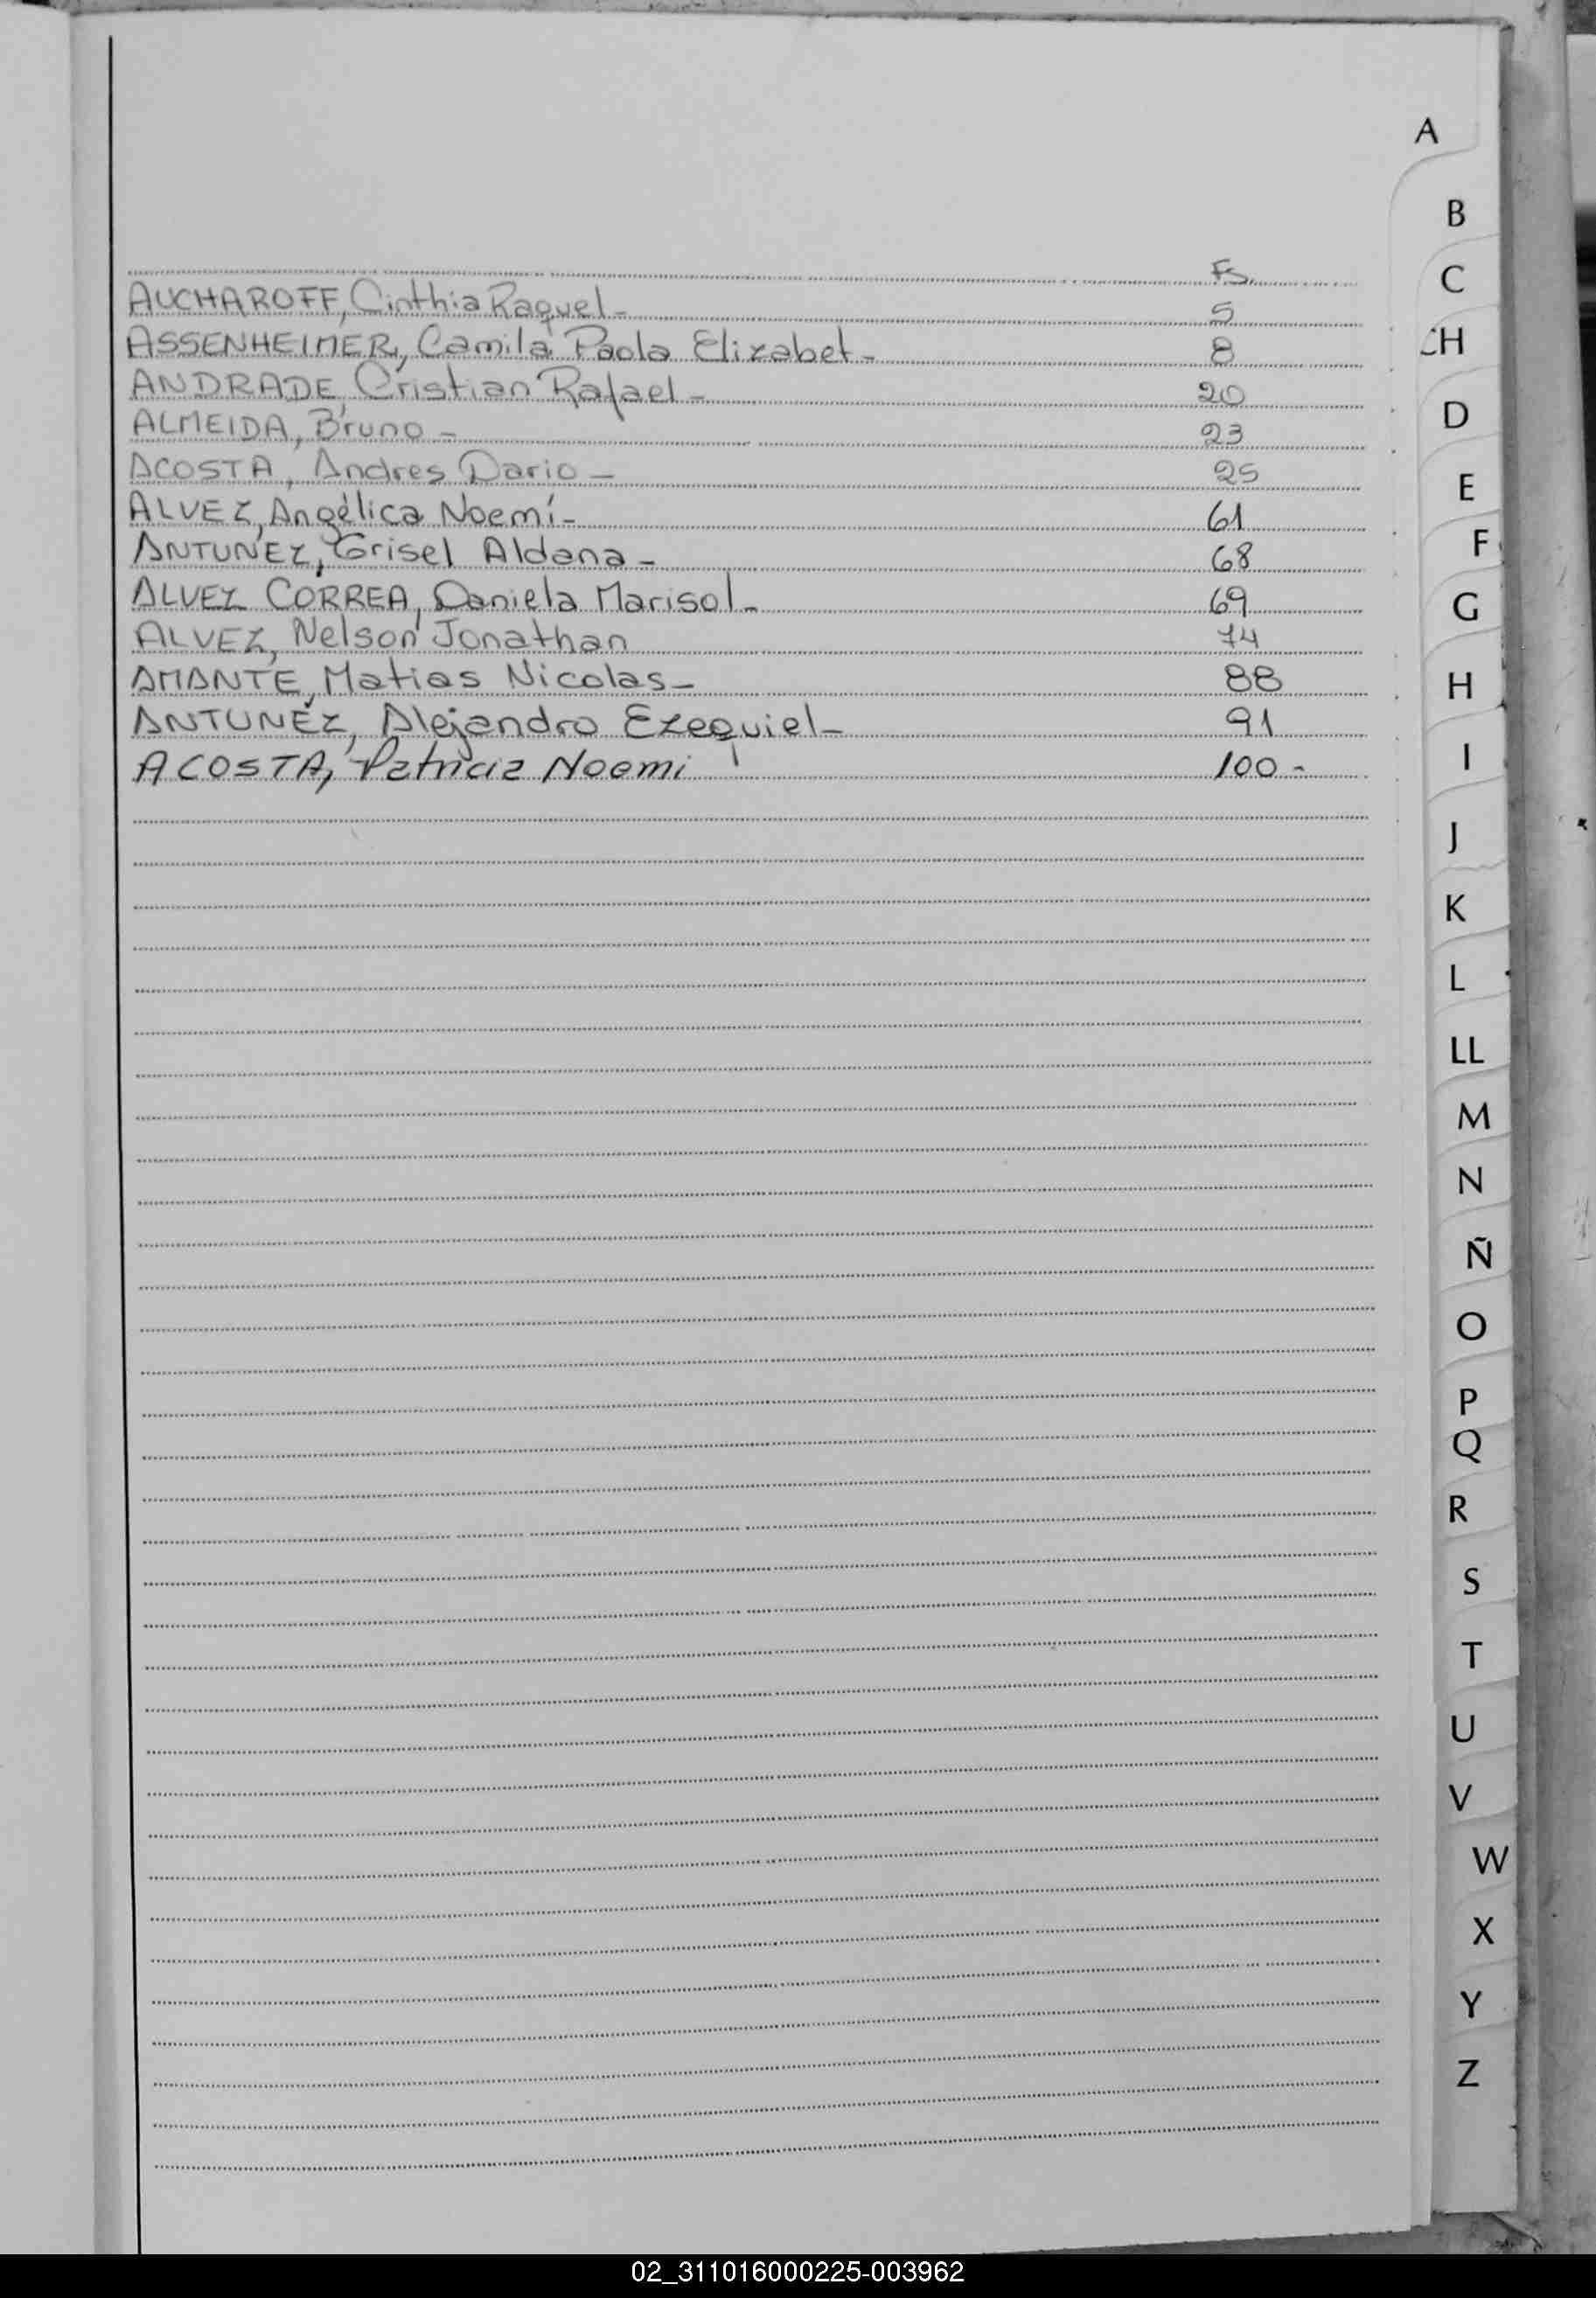 A
B
C
CH
D
E
F
G
H
I
J
K
L
LL
M
N
Ñ
O
P
Q
R
S
T
U
V
W
X
Y
Z
Fs.
AUCHAROFF, Cinthia Raquel - 5
ASSENHEIMER, Camila Paola Elizabet - 8
ANDRADE, Cristian Rafael - 20
ALMEIDA, Bruno - 23
ACOSTA, Andres Dario - 25
ALVEZ, Angélica Noemí - 61
ANTUNEZ, Grisel Aldana - 68
ALVEZ CORREA, Daniela Marisol - 69
ALVEZ, Nelson Jonathan 74
AMANTE, Matias Nicolas - 88
ANTUNEZ, Alejandro Ezequiel - 91
ACOSTA, Patricia Noemi 100 -
02_311016000225-003962